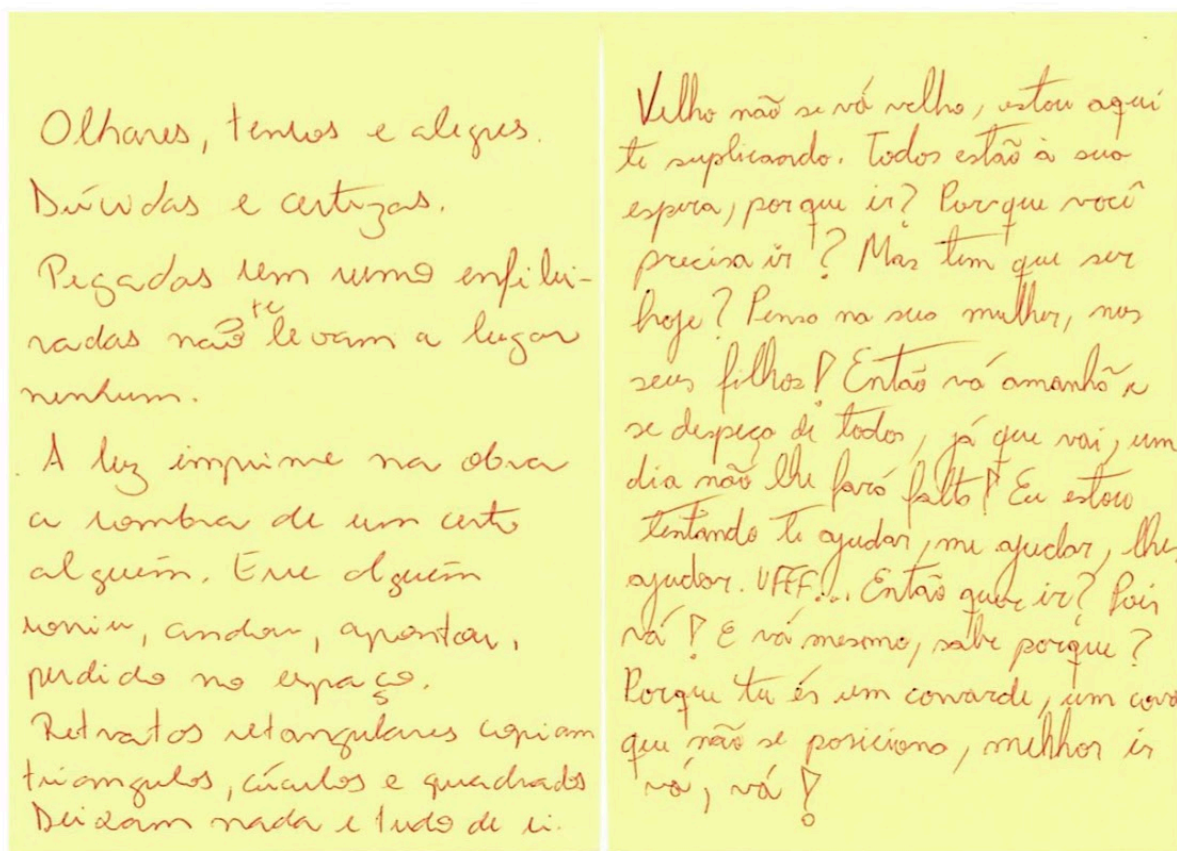 Olhares, tensos e alegres.
Dúvidas e certezas.
Pegadas sem rumo enfilei-
radas não te levam a lugar
nenhum.
A luz imprime na obra
a sombra de um certo
alguém. Esse alguém
sorriu, andou, apontou,
perdido no espaço.
Retratos retangulares copiam
triangulos, círculos e quadrados
Deixam nada e tudo de si.
Velho não se vá velho, estou aqui
te suplicando. Todos estão à sua
espera, porque ir? Porque você
precisa ir? Mas tem que ser
hoje? Pensa na sua mulher, nos
seus filhos! Então vá amanhã e
se despeça de todos, já que vai, um
dia não lhe fará falta! Eu estou
tentando te ajudar, me ajudar, lhe
ajudar. UFFF... Então quer ir? Pois
vá! E vá mesmo, sabe porque?
Porque tu és um covarde, um
que não se posiciona, melhor ir
vá, vá!